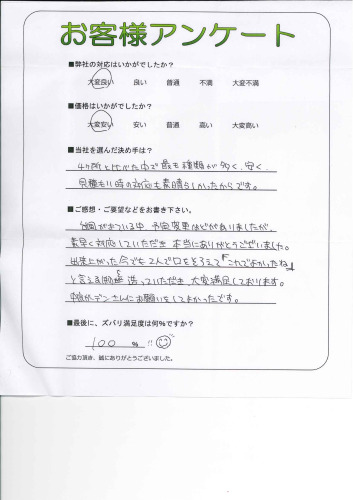 お客様アンケート
■弊社の対応はいかがでしたか？
大変良い 良い 普通 不満 大変不満
■価格はいかがでしたか？
大変安い 安い 普通 高い 大変高い
■当社を選んだ決め手は？
4ヶ所と比べた中で最も種類が多く、安く、
見積もり時の対応も素晴らしかったからです。
■ご感想・ご要望などをお書き下さい。
予定変更などがありましたが、
素早く対応していただき本当にありがとうございました。
出来上がった今でも2人で口をそろえて「これでよかったね」
と言える 造っていただき大変満足しております。
デンさんにお願いをしてよかったです。
■最後に、ズバリ満足度は何％ですか？
100 % !!
ご協力頂き、誠にありがとうございました。